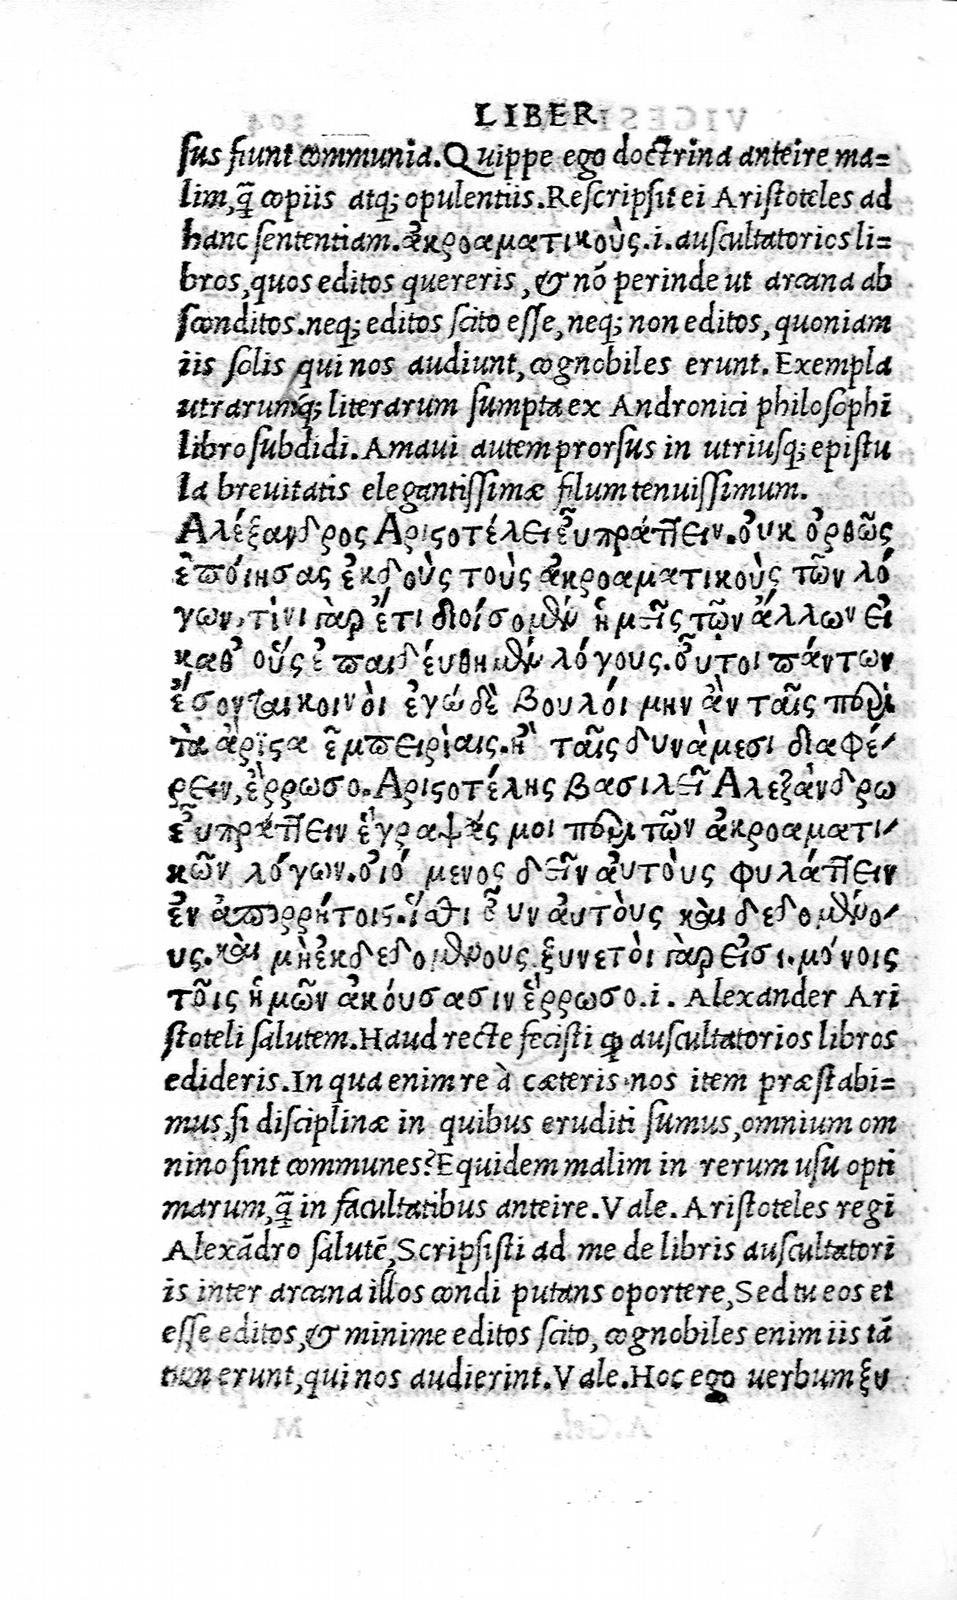 LIBER
sus fiunt communia.Quippe ego doctrina anteire ma=
lim,q̃ copiis atq; opulentiis.Rescripsit ei Aristoteles ad
hanc sententiam.ἀκροαματικοὺς.i.auscultatorios li=
bros,quos editos quereris,& nõ perinde ut arcana ab
sconditos.neq; editos scito esse,neq; non editos,quoniam
iis solis qui nos audiunt,cognobiles erunt.Exempla
utrarumq; literarum sumpta ex Andronici philosophi
libro subdidi.Amaui autem prorsus in utriusq; epistu
la breuitatis elegantissimæ filum tenuissimum.
Αλέξανδρος Αριςοτέλει εὖπράττειν.οὐκ ὀρθῶς
ἐποίησας ἐκδοὺς τοὺς ἀκροαματικοὺς τῶν λό
γων,τίνι γὰρ ἔτι διοίσομεν ἡμεῖς τῶν ἄλλων εἰ
καθ᾽ οὓς ἐπαιδέυθημεν λόγους.οὗτοι πάντων
ἔσονται κοινὸι ἐγώδὲ βουλόιμην ἂν ταῖς περὶ
τὰ ἄριςα ἐμπειρίαις.ἢ ταῖς δυνάμεσι διαφέ-
ρειν,ἔρρωσο.Αριςοτέλης βασιλεῖ Αλεξάνδρω
εὖπράττειν ἔγραψάς μοι περὶ τῶν ἀκροαματι-
κῶν λόγων.οἰόμενος δεῖν ἀυτοὺς φυλάττειν
ἐν ἀπορρήτοις.ἴσθι οὖν ἀυτοὺς καὶ δεδομένο-
υς.καὶ μὴἐκδεδομένους ξυνετὸι γὰρ εἰσι.μόνοις
τοῖς ἡμῶν ἀκόυσασιν ἔρρωσο.i. Alexander Ari
stoteli salutem.Haud recte fecisti ꝙ auscultatorios libros
edideris.In qua enim re à cæteris nos item præstabi=
mus,si disciplinæ in quibus eruditi sumus,omnium om
nino sint communes?Equidem malim in rerum usu opti
marum,q̃ in facultatibus anteire.Vale.Aristoteles regi
Alexãdro salutẽ,Scripsisti ad me de libris auscultatori
is inter arcana illos condi putans oportere,Sed tu eos et
esse editos,& minime editos scito,cognobiles enim iis tã
tum erunt,qui nos audierint.Vale.Hoc ego uerbum ξυ